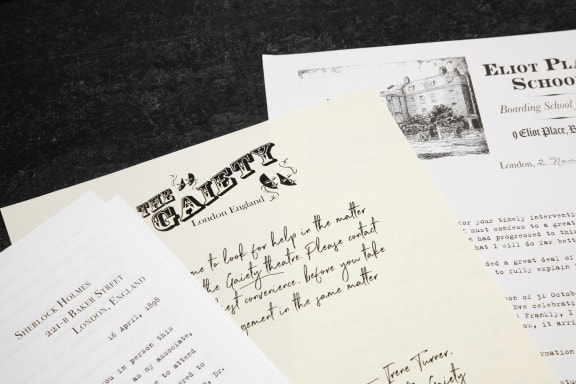 THE
GAIETY
London England
me to look for help in the matter
the Gaiety theatre. Please contact
best convenience, before you take
gement in the same matter
Irene Turner,
Gaiety
SHERLOCK HOLMES
221-B BAKER STREET
LONDON, ENGLAND
16 April, 1898
you in person this
as my associate,
to attend
red to
Dr.
ELIOT PLA
SCHOO
Boarding School
9 Eliot Place, B
London, 2 Nov
for your timely interventi
must confess to a great
had progressed to this
hat I will do far bett
ded a great deal of
to fully explain
on of 31 October
ve celebration
Frankly, I
ow, it arri